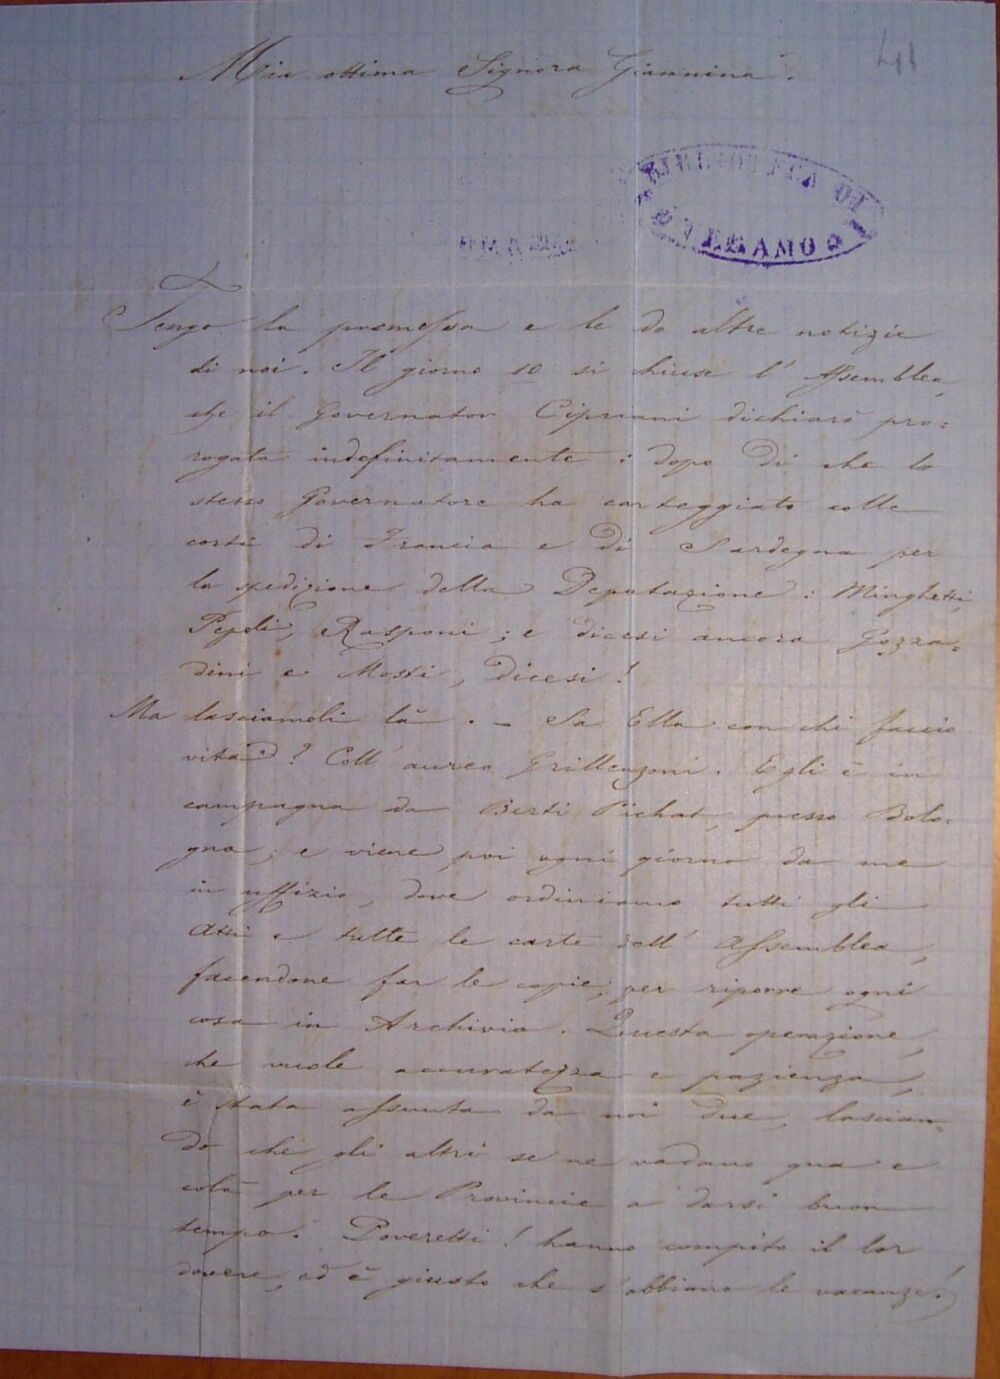 Mia ottima Signora Giannina.
41
BIBLIOTECA DI
TERAMO
Tengo la promessa e le do altre notizie
di noi. Il giorno 10 si chiuse l'Assemblea,
che il Governator Cipriani dichiarò pro=
rogata indefinitamente: dopo di che lo
stesso Governatore ha carteggiato colle
corti di Francia e di Sardegna per
la spedizione della Deputazione: Minghetti,
Pepoli, Rasponi; e dicesi ancora Gozza=
dini e Mosti, dicesi!
Ma lasciamoli là. — Sa Ella con chi faccio
vita? Coll'aureo Grillenzoni. Egli è in
campagna da Berti Pichat, presso Bolo=
gna; e viene poi ogni giorno da me
in uffizio, dove ordiniamo tutti gli
Atti e tutte le carte dell'Assemblea,
facendone far le copie, per riporre ogni
cosa in Archivio. Questa operazione,
che vuole accuratezza e pazienza,
è stata assunta da noi due, lascian=
do che gli altri se ne vadano qua e
colà per le Provincie a darsi buon
tempo. Poveretti! hanno compito il lor
dovere, ed è giusto che s'abbiano le vacanze!